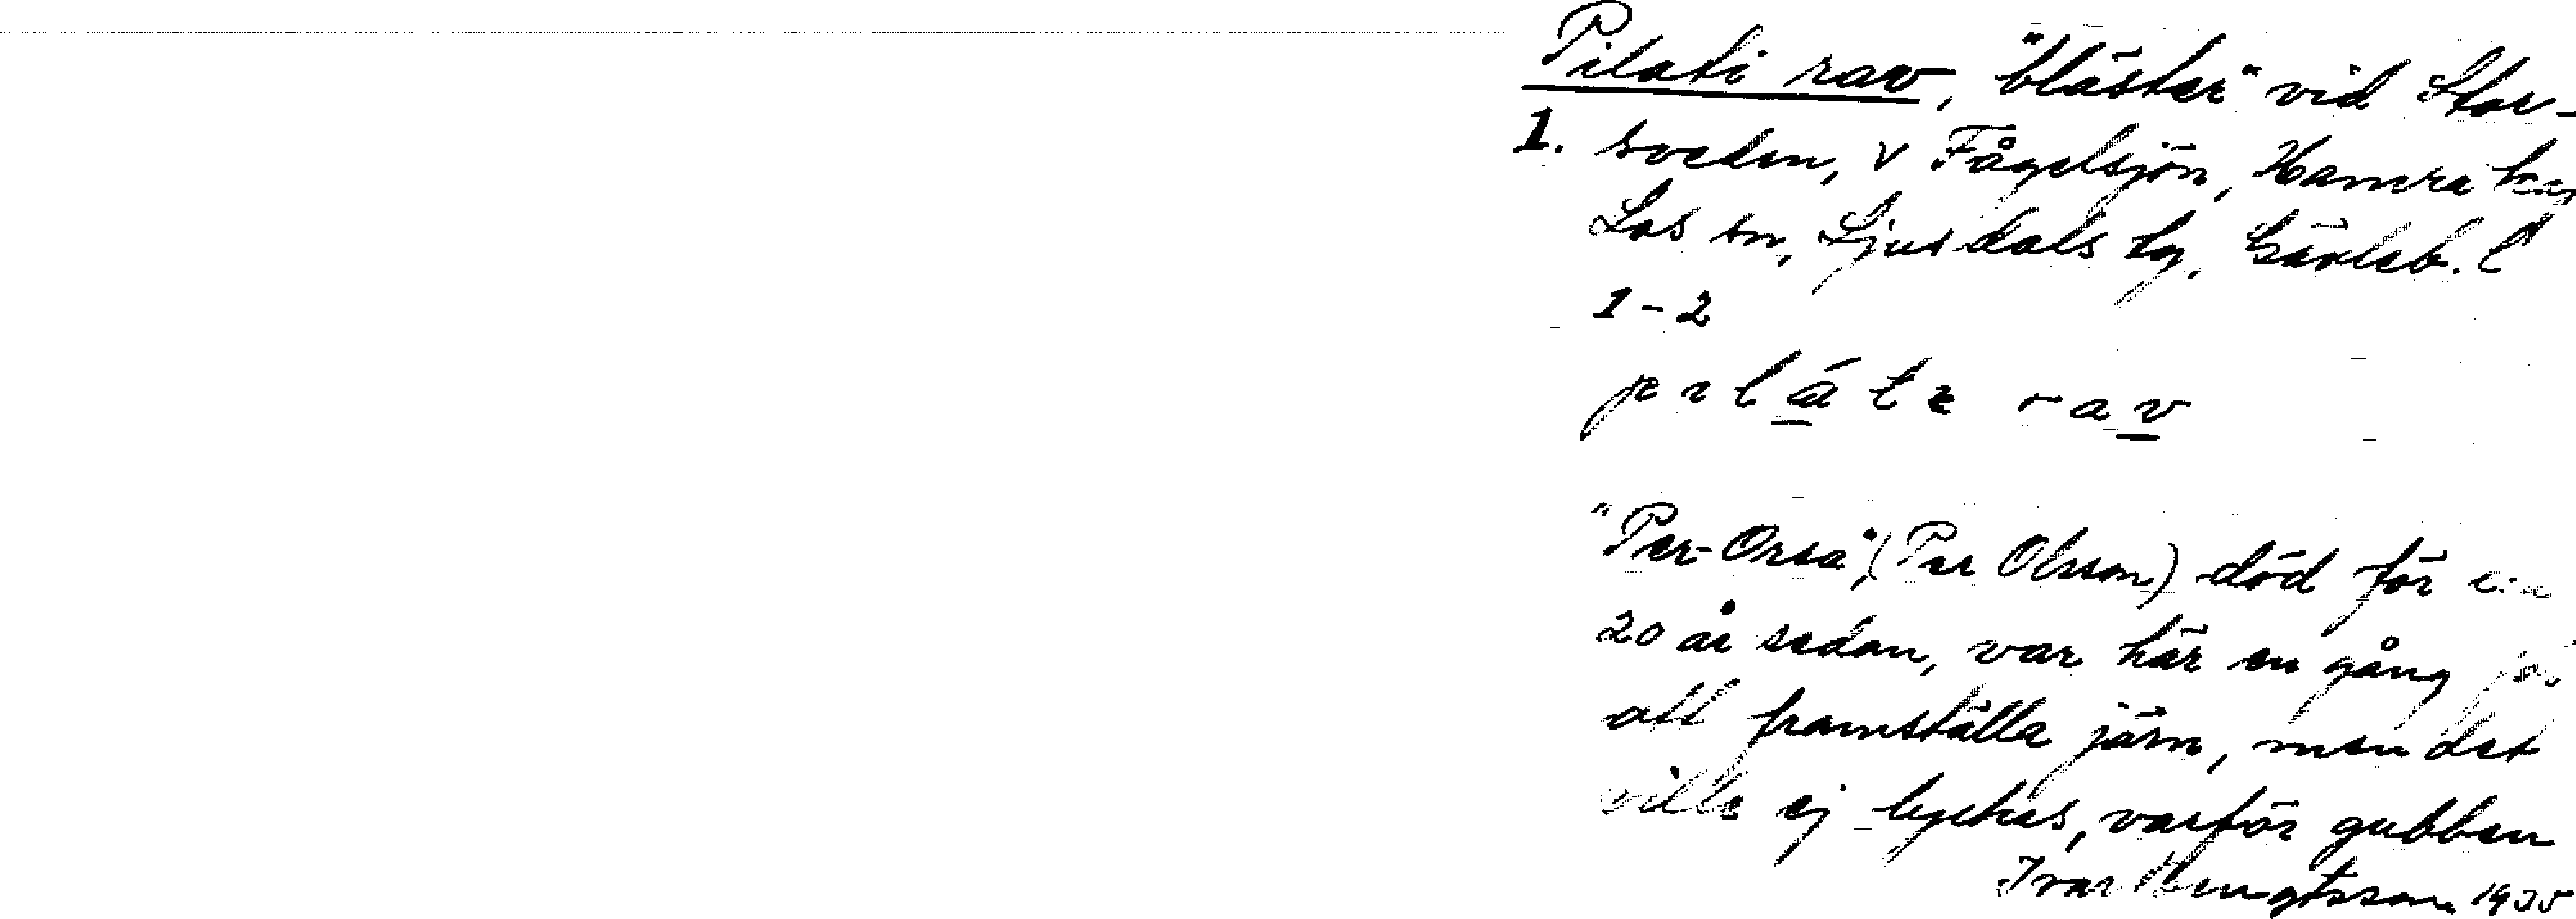 Pilati rav, "bläster" vid Stor-
1. sveden, v Fågelsjön, Hamra kap
Los sn, Ljusdals tg, Gävleb. l
1-2
pɪlátɪ rav
"Per-Orsa", (Per Olsson) död för
20 år sedan, var här en gång för
att framställa järn, men det
ville ej lyckas, varför gubben
Ivar Bengtsson 1935